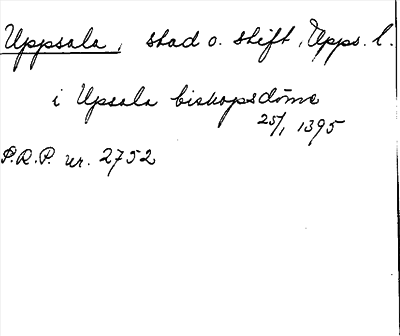 Uppsala, stad o. stift, Upps. l.
i Upsala biskopsdöme
25/1 1395
P.R.P. nr. 2752